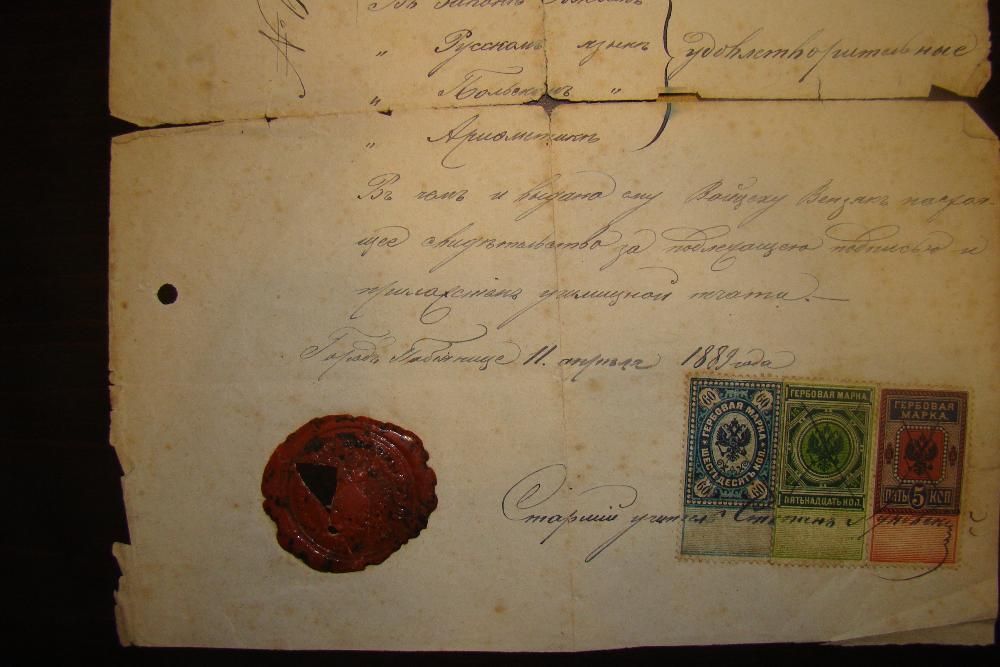 №
Въ Законѣ Божіемъ
„ Русскомъ языкѣ
удовлетворительные
„ Польскомъ „
„ Ариѳметикѣ
Въ чемъ и выдано ему Войцеху насто-
щее свидѣтельство за подлежащею подписью и
приложеніемъ училищной печати.—
Городъ Пабіянице 11. апрѣля 1889 года
ГЕРБОВАЯ МАРКА
60 60
ШЕСТЬДЕСЯТЪ КОП.
60 60
ГЕРБОВАЯ МАРКА.
ПЯТЬНАДЦАТЬ КОП.
ГЕРБОВАЯ МАРКА.
ПЯТЬ 5 КОП
Старшій учитель